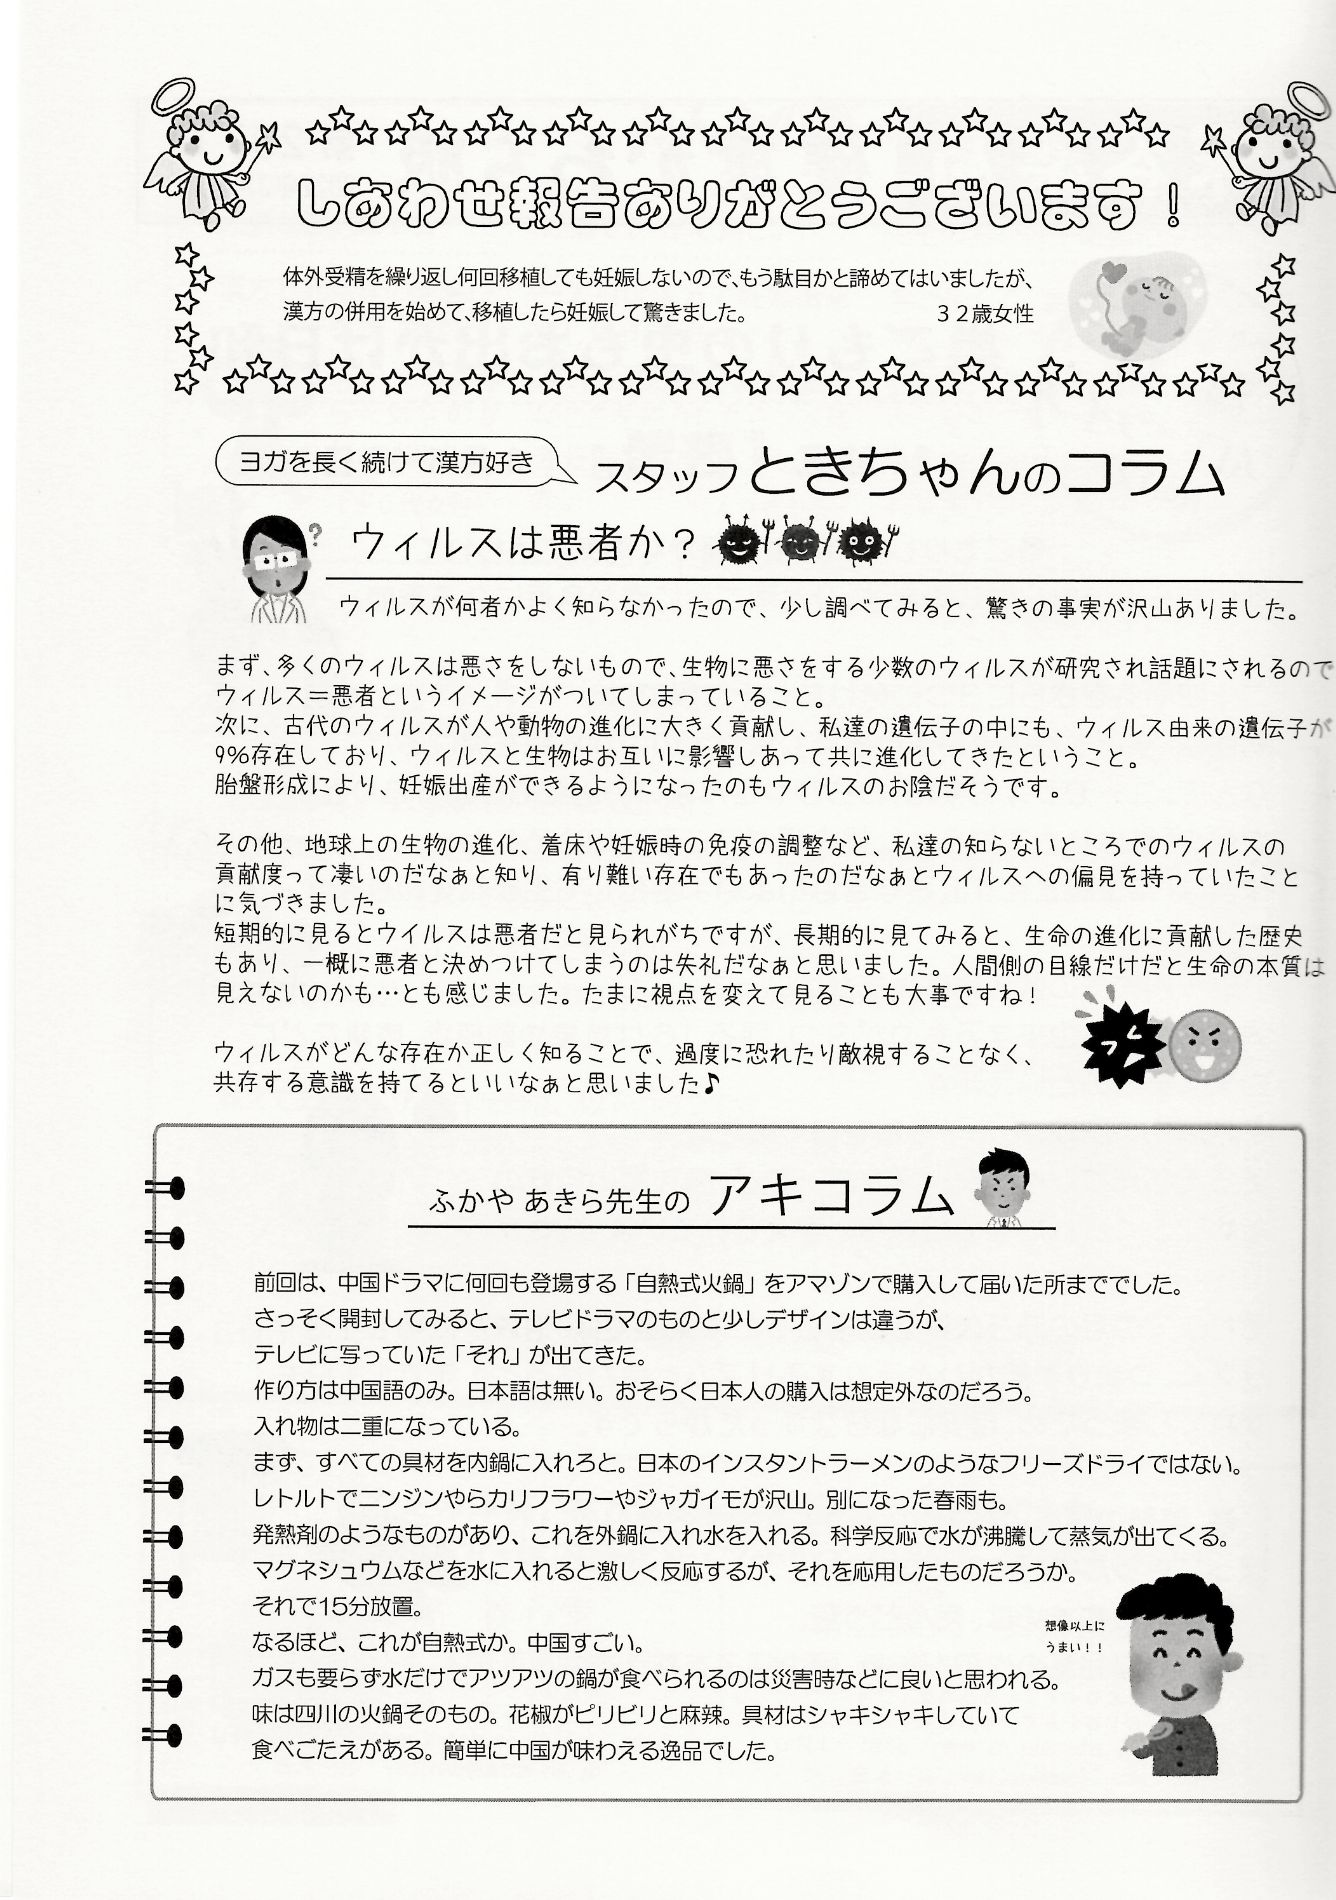 しあわせ報告ありがとうございます！
体外受精を繰り返し何回移植しても妊娠しないので、もう駄目かと諦めてはいましたが、
漢方の併用を始めて、移植したら妊娠して驚きました。　３２歳女性
ヨガを長く続けて漢方好き
スタッフときちゃんのコラム
ウィルスは悪者か？
ウィルスが何者かよく知らなかったので、少し調べてみると、驚きの事実が沢山ありました。
まず、多くのウィルスは悪さをしないもので、生物に悪さをする少数のウィルスが研究され話題にされるので
ウィルス＝悪者というイメージがついてしまっていること。
次に、古代のウィルスが人や動物の進化に大きく貢献し、私達の遺伝子の中にも、ウィルス由来の遺伝子が
9％存在しており、ウィルスと生物はお互いに影響しあって共に進化してきたということ。
胎盤形成により、妊娠出産ができるようになったのもウィルスのお陰だそうです。
その他、地球上の生物の進化、着床や妊娠時の免疫の調整など、私達の知らないところでのウィルスの
貢献度って凄いのだなぁと知り、有り難い存在でもあったのだなぁとウィルスへの偏見を持っていたこと
に気づきました。
短期的に見るとウイルスは悪者だと見られがちですが、長期的に見てみると、生命の進化に貢献した歴史
もあり、一概に悪者と決めつけてしまうのは失礼だなぁと思いました。人間側の目線だけだと生命の本質は
見えないのかも…とも感じました。たまに視点を変えて見ることも大事ですね！
ウィルスがどんな存在か正しく知ることで、過度に恐れたり敵視することなく、
共存する意識を持てるといいなぁと思いました♪
ふかや あきら先生の アキコラム
前回は、中国ドラマに何回も登場する「自熱式火鍋」をアマゾンで購入して届いた所まででした。
さっそく開封してみると、テレビドラマのものと少しデザインは違うが、
テレビに写っていた「それ」が出てきた。
作り方は中国語のみ。日本語は無い。おそらく日本人の購入は想定外なのだろう。
入れ物は二重になっている。
まず、すべての具材を内鍋に入れろと。日本のインスタントラーメンのようなフリーズドライではない。
レトルトでニンジンやらカリフラワーやジャガイモが沢山。別になった春雨も。
発熱剤のようなものがあり、これを外鍋に入れ水を入れる。科学反応で水が沸騰して蒸気が出てくる。
マグネシュウムなどを水に入れると激しく反応するが、それを応用したものだろうか。
それで15分放置。
なるほど、これが自熱式か。中国すごい。
ガスも要らず水だけでアツアツの鍋が食べられるのは災害時などに良いと思われる。
味は四川の火鍋そのもの。花椒がピリピリと麻辣。具材はシャキシャキしていて
食べごたえがある。簡単に中国が味わえる逸品でした。
想像以上に
うまい！！